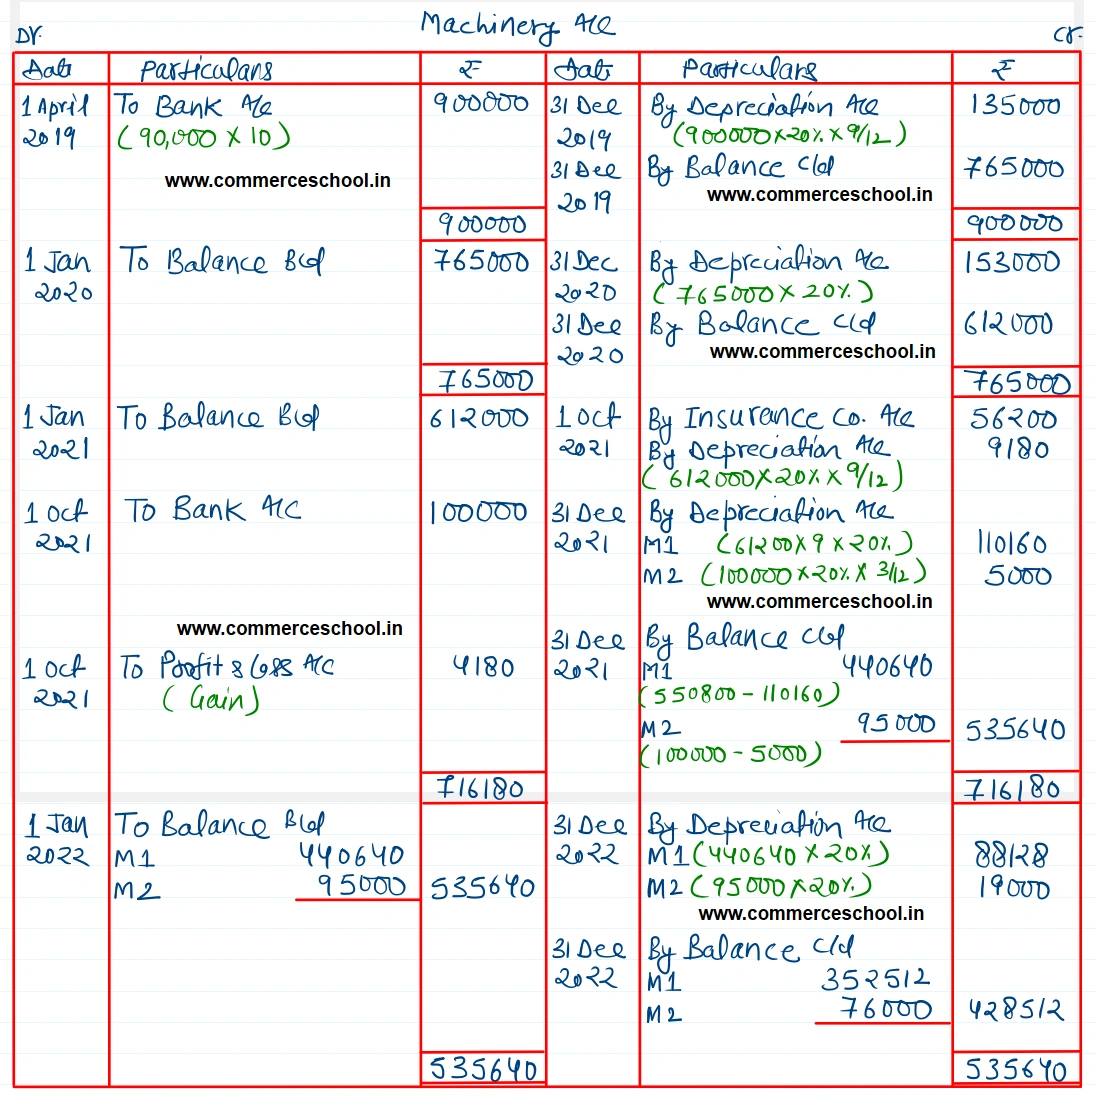 Machinery A/c
Dr.
Cr.
Date Particulars ₹ Date Particulars ₹
1 April To Bank A/c 900000 31 Dec By Depreciation A/c 135000
2019 (90,000 X 10) 2019 (900000 x 20% x 9/12)
www.commerceschool.in 31 Dec By Balance c/d 765000
2019 www.commerceschool.in
900000 900000
1 Jan To Balance B/d 765000 31 Dec By Depreciation A/c 153000
2020 2020 (765000 X 20%)
31 Dec By Balance c/d 612000
2020 www.commerceschool.in
765000 765000
1 Jan To Balance B/d 612000 1 Oct By Insurance Co. A/c 56200
2021 2021 By Depreciation A/c 9180
(612000 X 20% X 9/12)
1 Oct To Bank A/C 100000 31 Dec By Depreciation A/c
2021 2021 M1 (61200 X 9 X 20%) 110160
M2 (100000 X 20% X 3/12) 5000
www.commerceschool.in
www.commerceschool.in 31 Dec By Balance c/d
1 Oct To Profit & Loss A/C 4180 2021 M1 440640
2021 (Gain) (550800 - 110160)
M2 95000 535640
(100000 - 5000)
716180 716180
1 Jan To Balance B/d 31 Dec By Depreciation A/c
2022 M1 440640 2022 M1 (440640 X 20%) 88128
M2 95000 535640 M2 (95000 X 20%) 19000
www.commerceschool.in
31 Dec By Balance c/d
2022 M1 352512
M2 76000 428512
535640 535640